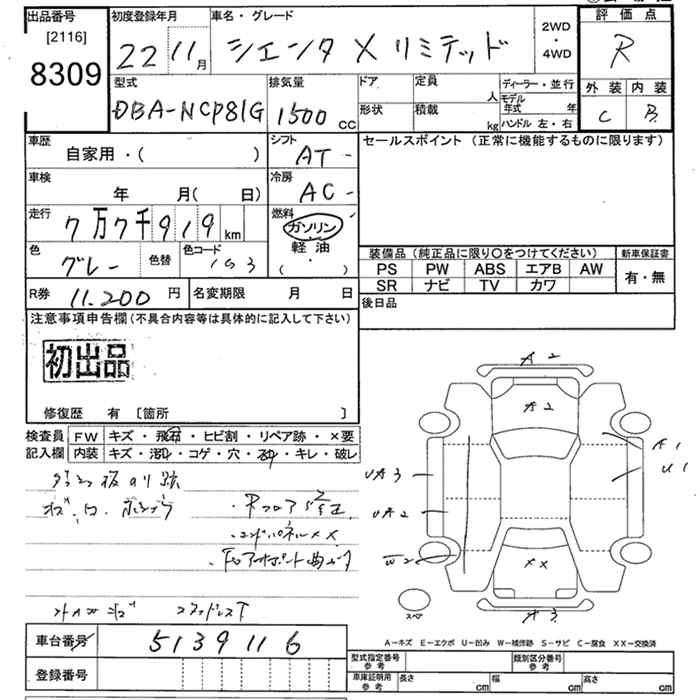 出品番号 初度登録年月 車名・グレード 2WD・4WD 評価点
[2116] 8309 22 11月 シエンタ Xリミテッド R
型式 排気量 ドア 定員 人 ディーラー・並行 外装 内装
DBA-NCP81G 1500cc 形状 積載 kg モデル年式 年 ハンドル 左・右 C B
車歴 シフト セールスポイント (正常に機能するものに限ります)
自家用・( ) AT-
車検 年 月( 日) 冷房 AC-
走行 7万7千919km 燃料 ガソリン・軽油 ( ・ )
色 グレー 色替 色コード 1G3
装備品 (純正品に限り○をつけてください) 新車保証書
PS PW ABS エアB AW 有・無
SR ナビ TV カワ
R券 11.200円 名変期限 月 日 後日品
注意事項申告欄(不具合内容等は具体的に記入して下さい)
初出品
修復歴 有 [箇所 ]
検査員記入欄 FW キズ・飛石・ヒビ割・リペア跡・×要
内装 キズ・汚れ・コゲ・穴・ネジ・キレ・破レ
・Rフロア修正
・エンドパネルXX
A2
A2
A1
U1
UA3
UA2
W2
XX
A3
スペア
A−キズ E−エクボ U−凹み W−補修跡 S−サビ C−腐食 XX−交換済
車台番号 5139116
登録番号
型式指定番号参考 類別区分番号参考
車庫証明用参考 長さ cm 幅 cm 高さ cm